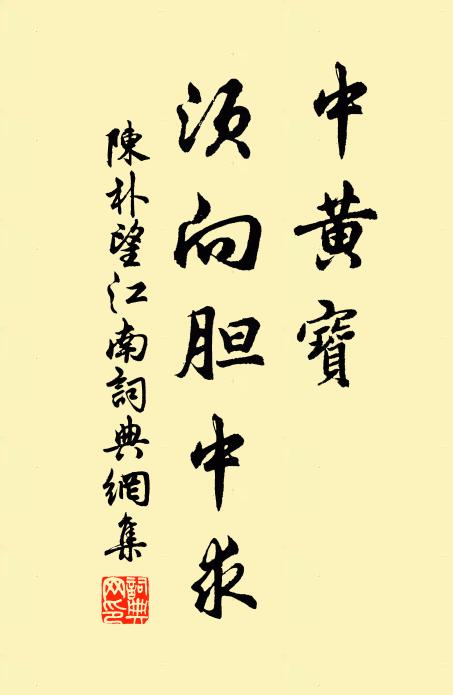 中黄寶
須向胆中求
陳朴望江南詞典網集
詞典網印